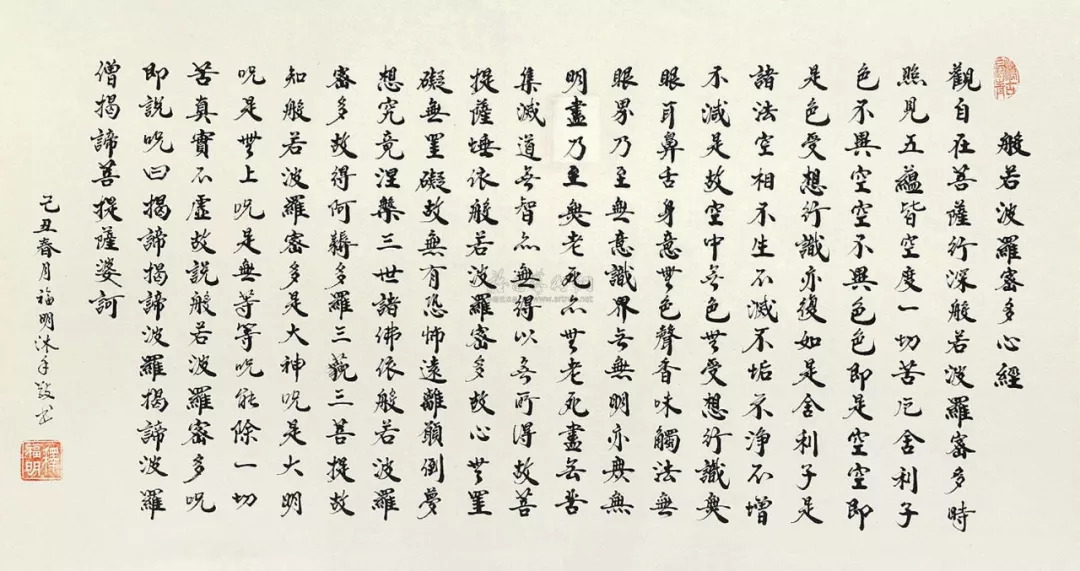 般若波羅密多心經
觀自在菩薩行深般若波羅密多時
照見五蘊皆空度一切苦厄舍利子
色不異空空不異色色即是空空即
是色受想行識亦復如是舍利子是
諸法空相不生不滅不垢不淨不增
不減是故空中無色無受想行識無
眼耳鼻舌身意無色聲香味觸法無
眼界乃至無意識界無無明亦無無
明盡乃至無老死亦無老死盡無苦
集滅道無智亦無得以無所得故菩
提薩埵依般若波羅密多故心無罣
礙無罣礙故無有恐怖遠離顛倒夢
想究竟涅槃三世諸佛依般若波羅
密多故得阿耨多羅三藐三菩提故
知般若波羅密多是大神咒是大明
咒是無上咒是無等等咒能除一切
苦真實不虛故說般若波羅密多咒
即說咒曰揭諦揭諦波羅揭諦波羅
僧揭諦菩提薩婆訶
己丑春月福明沐手敬书
釋福明